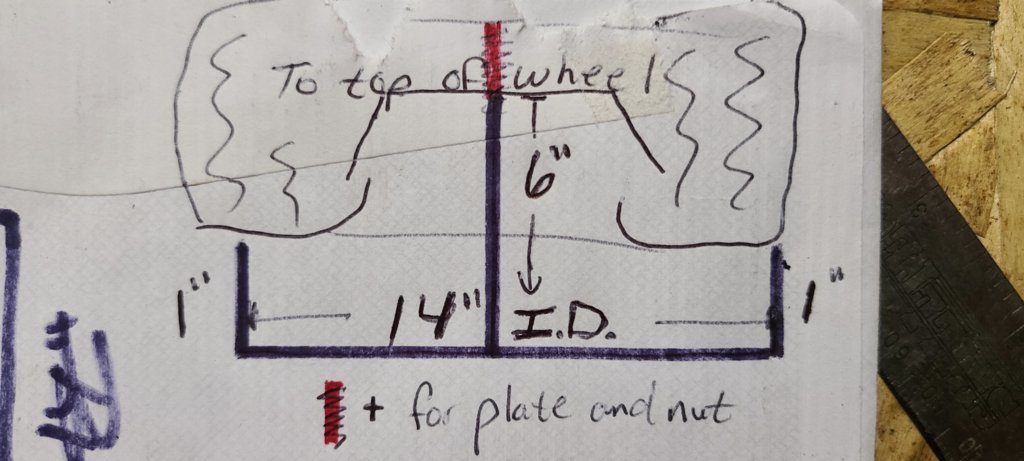 To top of wheel
6"
1" 14" I.D. 1"
+ for plate and nut